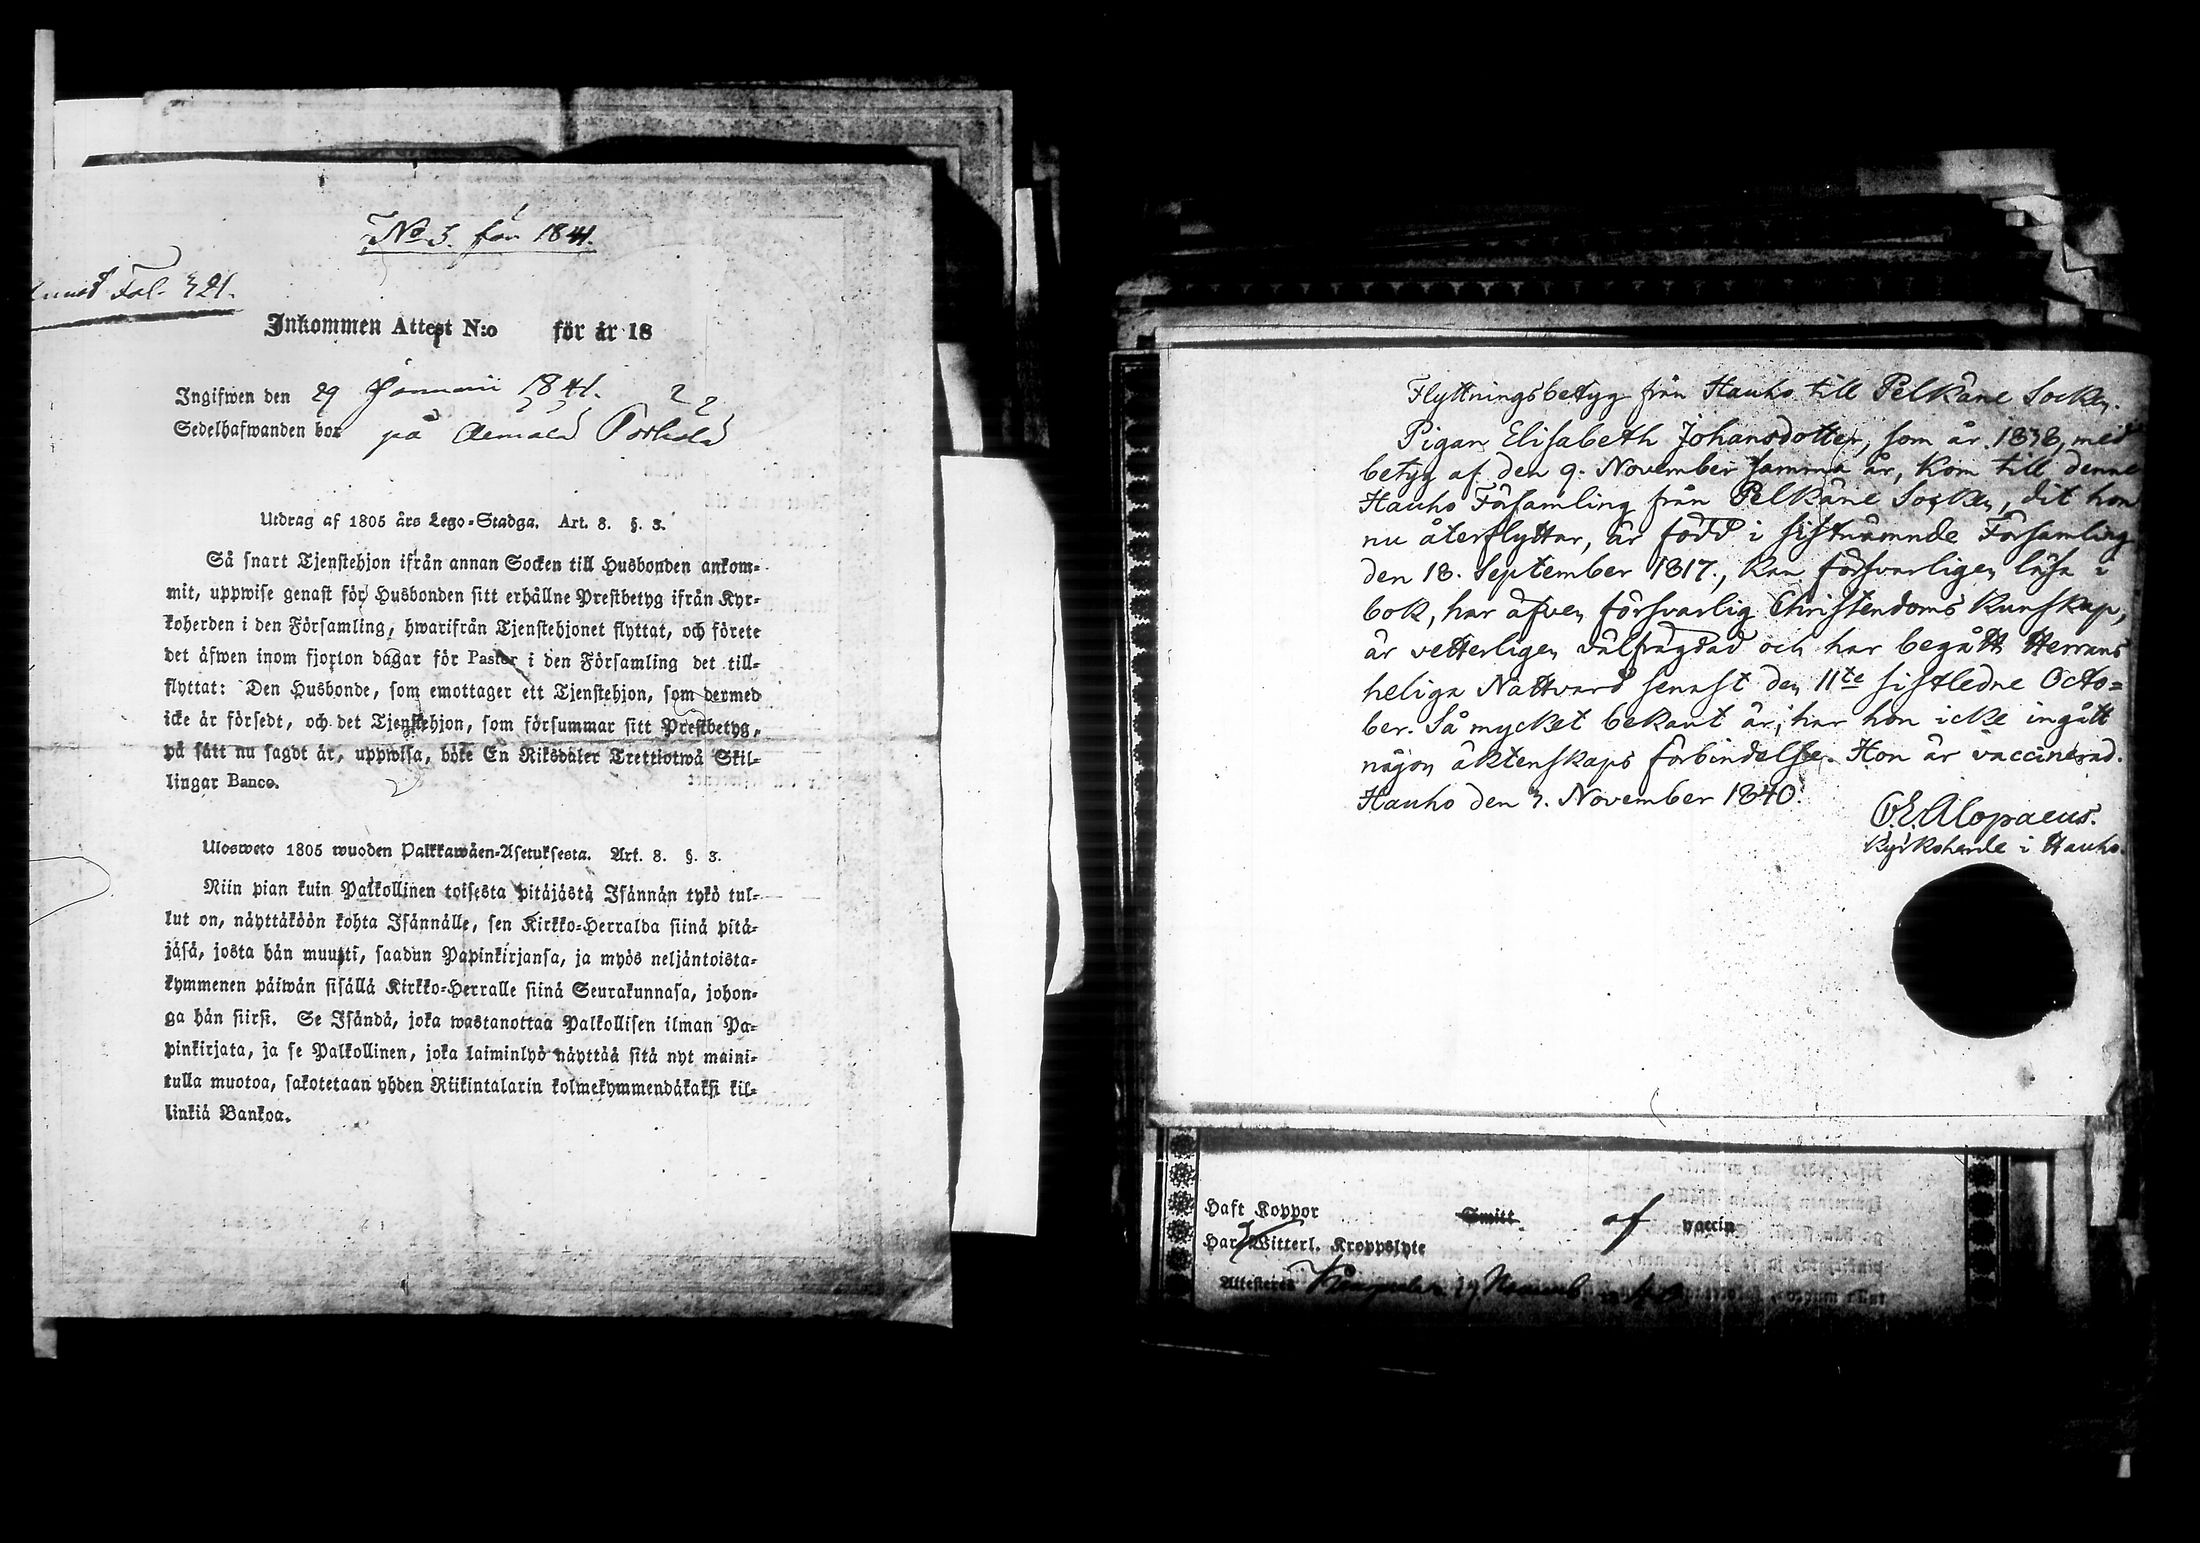 No 3. för 1841.
Fol. 321.
Inkommen Attest N:o för år 18
Ingifwen den 29 Januarii 1841.
Sedelhafwanden bor på
Utdrag af 1805 års Lego-Stadga. Art. 8. §. 3.
Så snart Tjenstehjon ifrån annan Socken till Husbonden ankom-
mit, uppwise genast för Husbonden sitt erhållne Prestbetyg ifrån Kyr-
koherden i den Församling, hwarifrån Tjenstehjonet flyttat, och förete
det äfwen inom fjorton dagar för Pastor i den Församling det till-
flyttat: Den Husbonde, som emottager ett Tjenstehjon, som dermed
icke är försedt, och det Tjenstehjon, som försummar sitt Prestbetyg,
på sätt nu sagdt är, uppwisa, böte En Riksdaler Trettiotwå Skil-
lingar Banco.
Ulosweto 1805 wuoden Palkkawäen-Asetuksesta. Art. 8. §. 3.
Niin pian kuin Palkollinen toisesta pitäjästä Isännän tykö tul-
lut on, näyttäköön kohta Isännälle, sen Kirkko-Herralda siinä pitä-
jäsä, josta hän muutti, saadun Papinkirjansa, ja myös neljäntoista-
kymmenen päiwän sisällä Kirkko-Herralle siinä Seurakunnasa, johon-
ga hän siirsi. Se Isändä, joka wastanottaa Palkollisen ilman Pa-
pinkirjata, ja se Palkollinen, joka laiminlyö näyttää sitä nyt maini-
tulla muotoa, sakotetaan yhden Riikintalarin kolmekymmendäkaksi kil-
linkiä Bankoa.
Flyttningsbetyg från Hauho till Pelkäne Socken.
Pigan Elisabeth Johansdotter, som år 1838, med
betyg af den 9. November samma år, kom till denne
Hauho Församling från Pelkäne Socken, dit hon
nu återflyttar, är född i sistnämnde Församling
den 18. September 1817., kan försvarligen läsa i
bok, har äfven försvarlig Christendoms kunskap,
är vetterligen välfrägdad och har begått Herrans
heliga Nattvard senast den 11te sistledne Octo=
ber. Så mycket bekant är, har hon icke ingått
någon äktenskaps förbindelse. Hon är vaccinerad.
Hauho den 3. November 1840.
C.E. Alopaeus.
Kyrkoherde i Hauho.
Haft Koppor Smitt af vaccin
Har Witterl. Kroppslyte
Attesteres